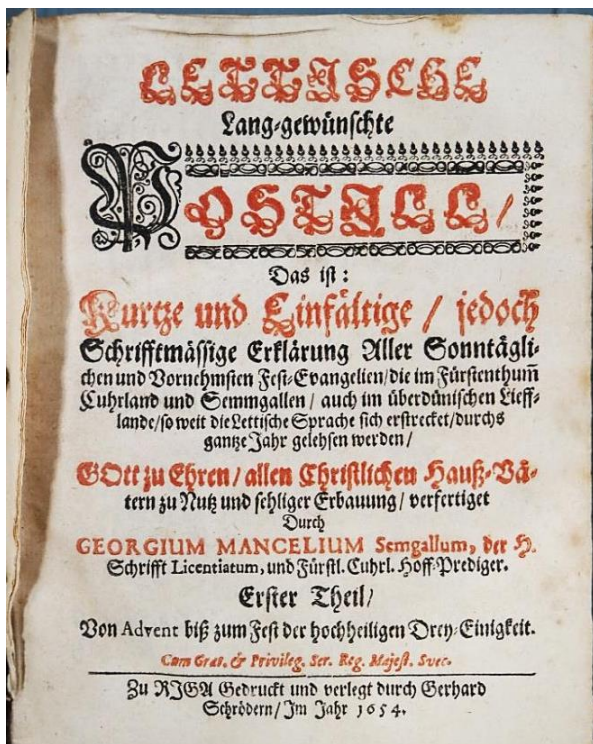 LETTISCHE
Lang-gewünschte
POSTILL/
Das ist:
Kurtze und Einfältige / jedoch
Schrifftmässige Erklärung Aller Sonntägli-
chen und Vornehmsten Fest-Evangelien/die im Fürstenthum̅
Cuhrland und Semmgallen / auch im überdünischen Lieff-
lande/so weit die Lettische Sprache sich erstrecket/durchs
gantze Jahr gelehsen werden/
GOtt zu Ehren/allen Christlichen Hauß-Vä-
tern zu Nutz und sehliger Erbauung/ verfertiget
Durch
GEORGIUM MANCELIUM Semgallum, der H.
Schrifft Licentiatum, und Fürstl. Cuhrl. Hoff-Prediger.
Erster Theil/
Von Advent biß zum Fest der hochheiligen Drey-Einigkeit.
Cum Grat. & Privileg. Ser. Reg. Majest. Svec.
Zu RIGA Gedruckt und verlegt durch Gerhard
Schrödern/Im Jahr 1654.